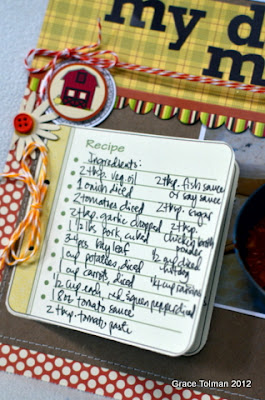 my d
m
Recipe
Ingredients:
2 tbsp. veg oil 2 tsp. fish sauce
1 onion diced or soy sauce
2 tomatoes diced 2 tsp. sugar
2 tsp. garlic chopped 2 tsp.
1 1/2 lbs pork, cubed chicken broth
3 pcs bay leaf powder
1 cup potatoes, diced 1/2 cup diced
1 cup carrots, diced
1/2 cup each, red & green pepper diced 1/2 cup raisins
1 8 oz tomato sauce
2 tbsp. tomato paste
Grace Tolman 2012